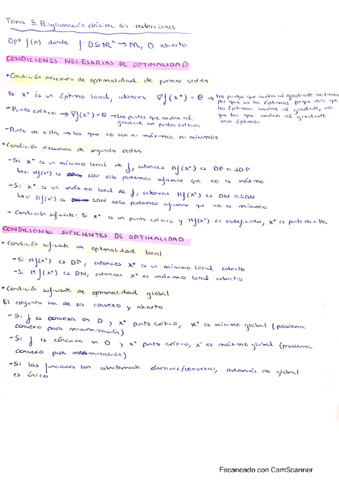 Tema 3. Programación clásica sin restricciones
Opt f(x) donde f: D⊆ℝⁿ → ℝ, D abierto
CONDICIONES NECESARIAS DE OPTIMALIDAD
• Condición necesaria de optimalidad de primer orden
Si x* es un óptimo local, entonces ∇f(x*) = θ → los puntos que anulan al gradiente no tienen
por qué ser los óptimos
- Punto crítico → ∇f(x*) = θ → los puntos que anulan al
gradiente son puntos críticos
- Punto de silla → los que no son ni máximos ni mínimos
• Condición necesaria de segundo orden
- Si x* es un mínimo local de f, entonces Hf(x*) es DP o SDP
Las Hf(x*) es SDP solo podemos afirmar que no es máximo
- Si x* es un máximo local de f, entonces Hf(x*) es DN o SDN
Las Hf(x*) es SDN solo podemos afirmar que no es mínimo
- Condición suficiente: Si x* es un punto crítico y Hf(x*) es indefinida, x* es punto de silla
CONDICIONES SUFICIENTES DE OPTIMALIDAD
• Condición suficiente de optimalidad local
- Si Hf(x*) es DP, entonces x* es un mínimo local estricto
- Si Hf(x*) es DN, entonces x* es máximo local estricto
• Condición suficiente de optimalidad global
El conjunto ha de ser convexo y abierto
- Si f es convexa en D y x* punto crítico, x* es mínimo global (problema
convexo para minimización)
- Si f es cóncava en D y x* punto crítico, x* es máximo global (problema
convexo para maximización)
- Si las funciones son estrictamente cóncavas/convexas, además de global
es único
Escaneado con CamScanner